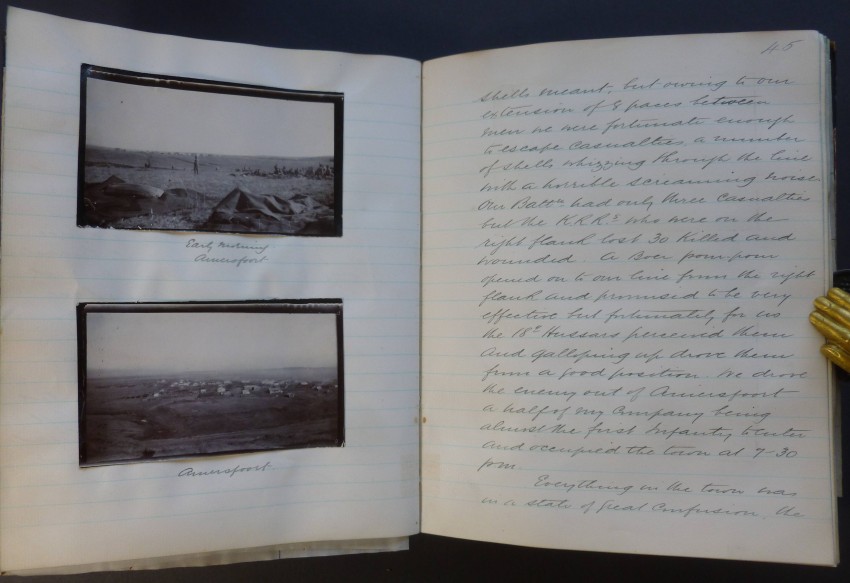 Early morning
Amersfoort
Amersfoort
45
shells meant, but owning to our
extension of 8 paces between
men we were fortunate enough
to escape casualties, a number
of shells whizzing through the line
with a horrible screaming noise.
Our Battn had only three casualties
but the K.R.R.s who were on the
right flank lost 30 killed and
wounded. A Boer pom-pom
opened on to our line from the right
flank and promised to be very
effective but fortunately for us
the 18th Hussars perceived them
and galloping up drove them
from a good position. We drove
the enemy out of Amersfoort
a half of my Company being
almost the first Infantry to enter
and occupied the town at 7-30
pm.
Everything in the town was
in a state of great confusion, the